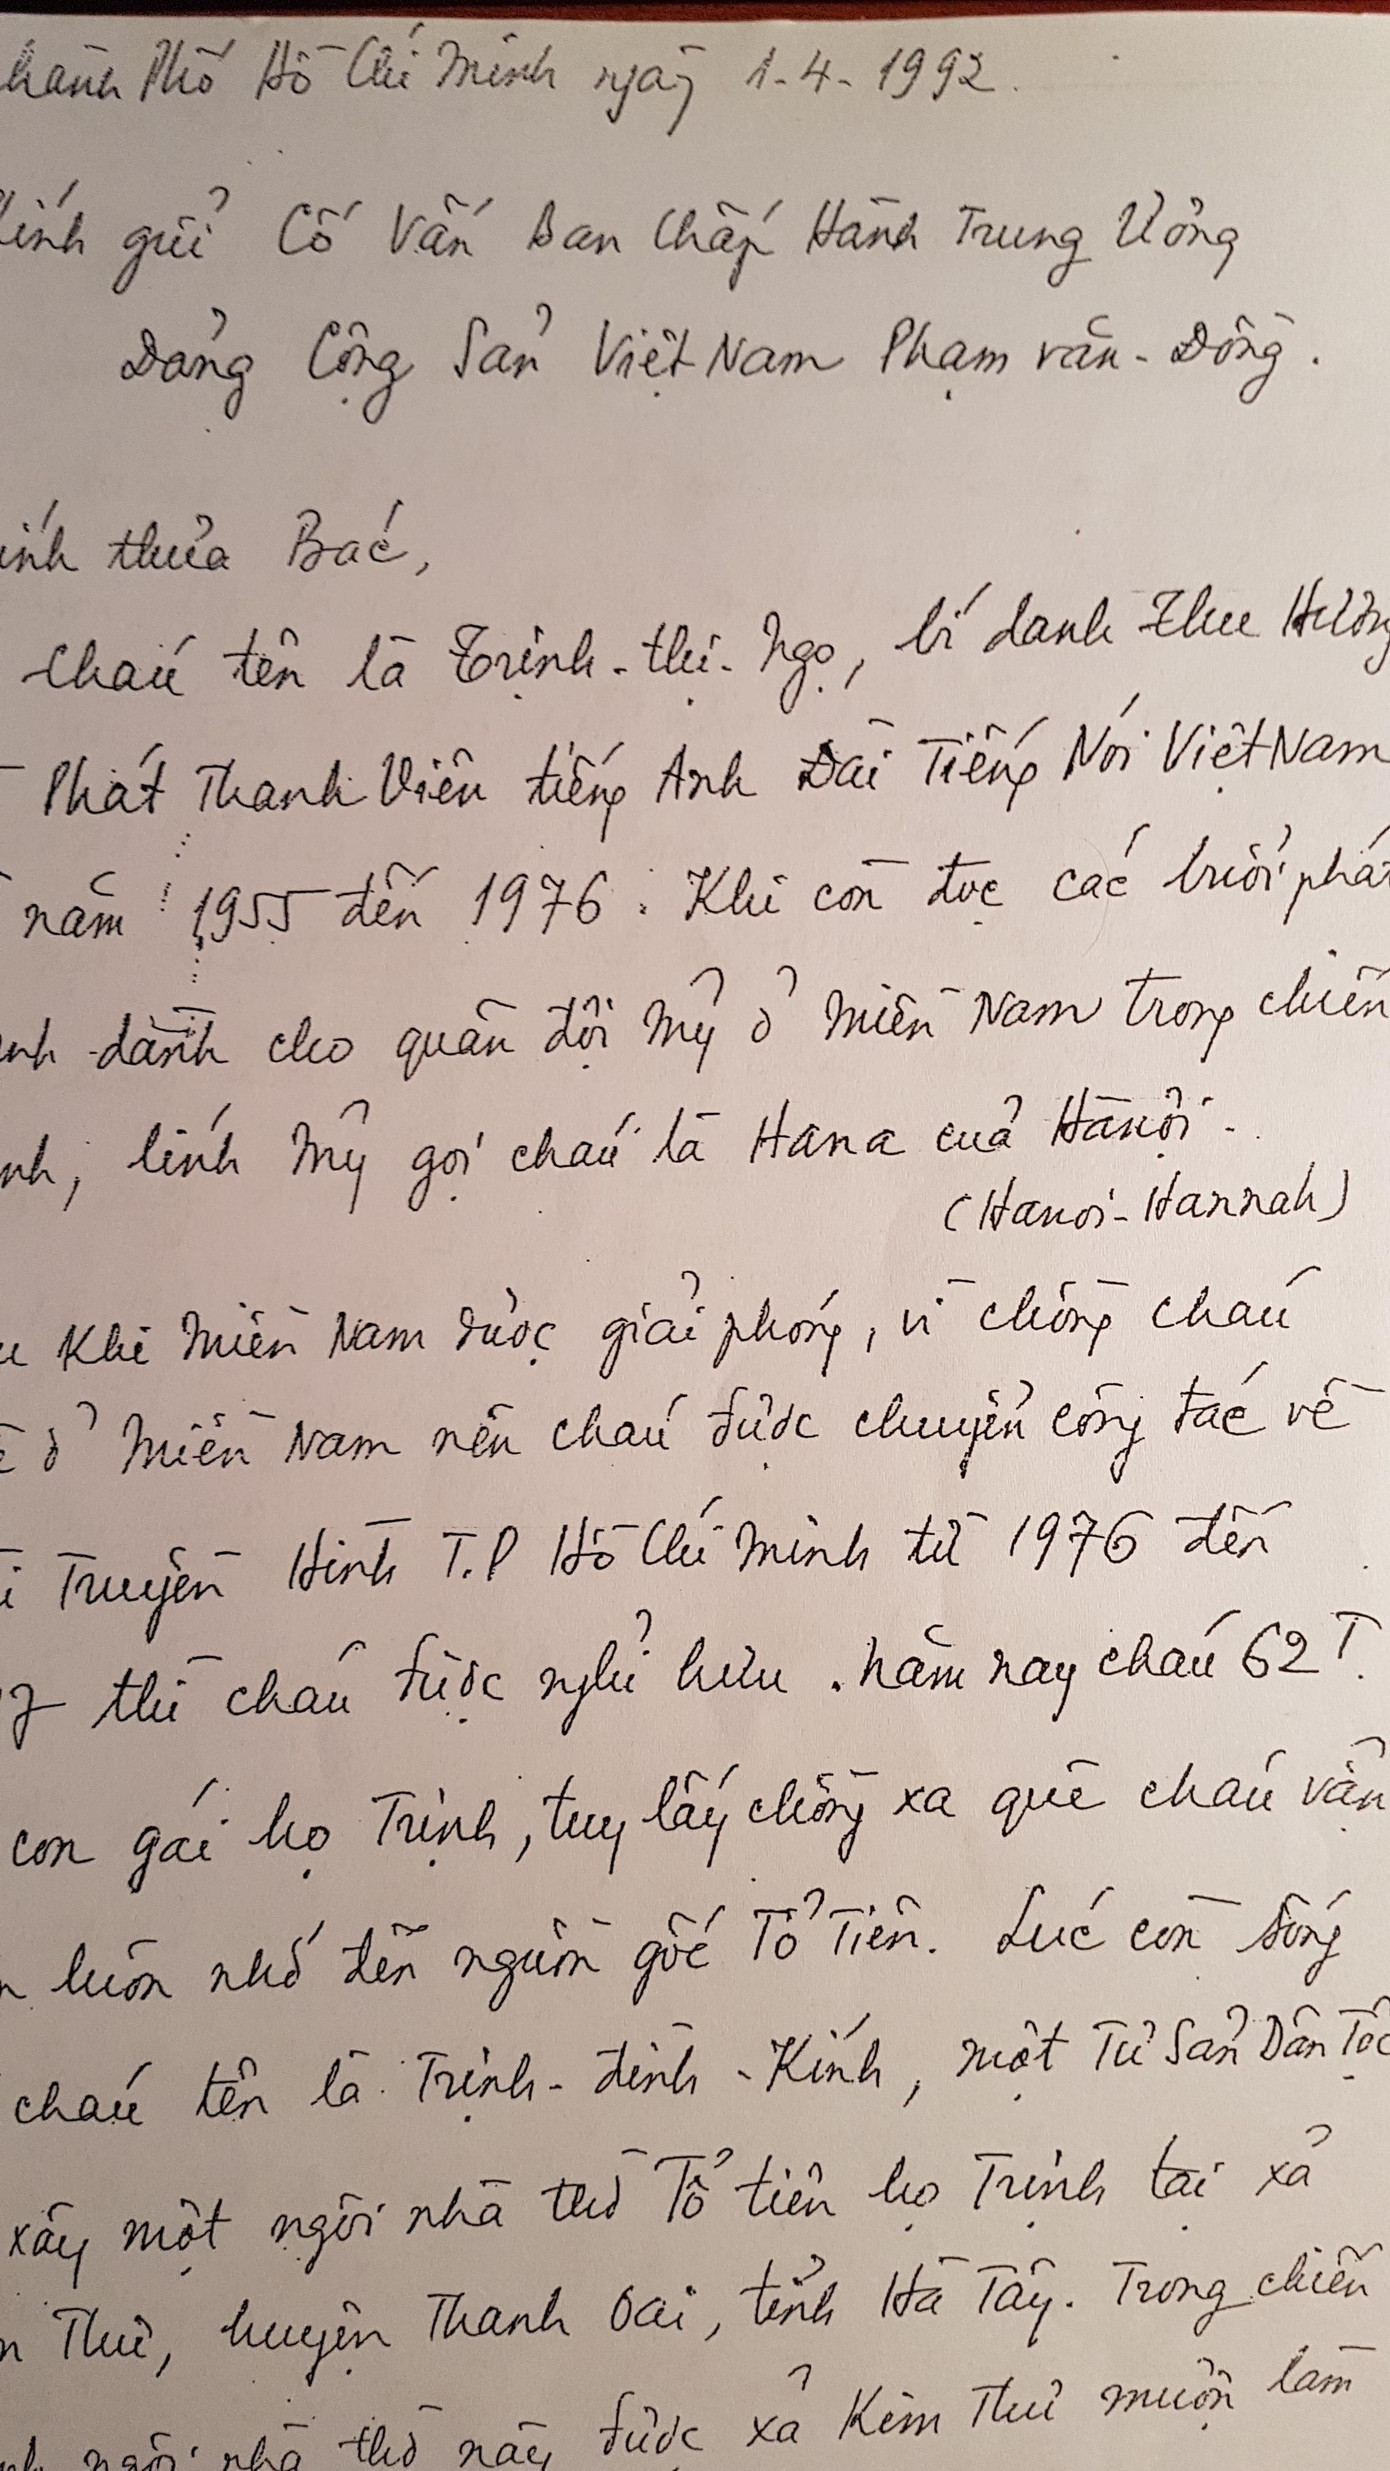 hành Phố Hồ Chí Minh ngày 1-4-1992.
Kính gửi Cố Vấn Ban Chấp Hành Trung Ương
Đảng Cộng Sản Việt Nam Phạm văn-Đồng.
ính thưa Bác,
Cháu tên là Trịnh-thị-Ngọ, bí danh Thu Hương
Phát Thanh Viên tiếng Anh Đài Tiếng Nói Việt Nam
năm 1955 đến 1976. Khi còn đọc các buổi phát
nh dành cho quân đội Mỹ ở miền Nam trong chiến
nh, lính Mỹ gọi cháu là Hana của Hànội.
(Hanoi-Hannah)
u khi miền Nam được giải phóng, vì chồng cháu
ê ở miền Nam nên cháu được chuyển công tác về
i Truyền Hình T.P Hồ Chí Minh từ 1976 đến
7 thì cháu được nghỉ hưu. Năm nay cháu 62 T.
con gái họ Trịnh, tuy lấy chồng xa quê cháu vẫn
n luôn nhớ đến nguồn gốc Tổ Tiên. Lúc còn sống
cháu tên là Trịnh-đình-Kính, một Tư Sản Dân Tộc
xây một ngôi nhà thờ Tổ tiên họ Trịnh tại xã
n Thư, huyện Thanh Oai, tỉnh Hà Tây. Trong chiến
nh ngôi nhà thờ này được xã Kim Thư mượn làm